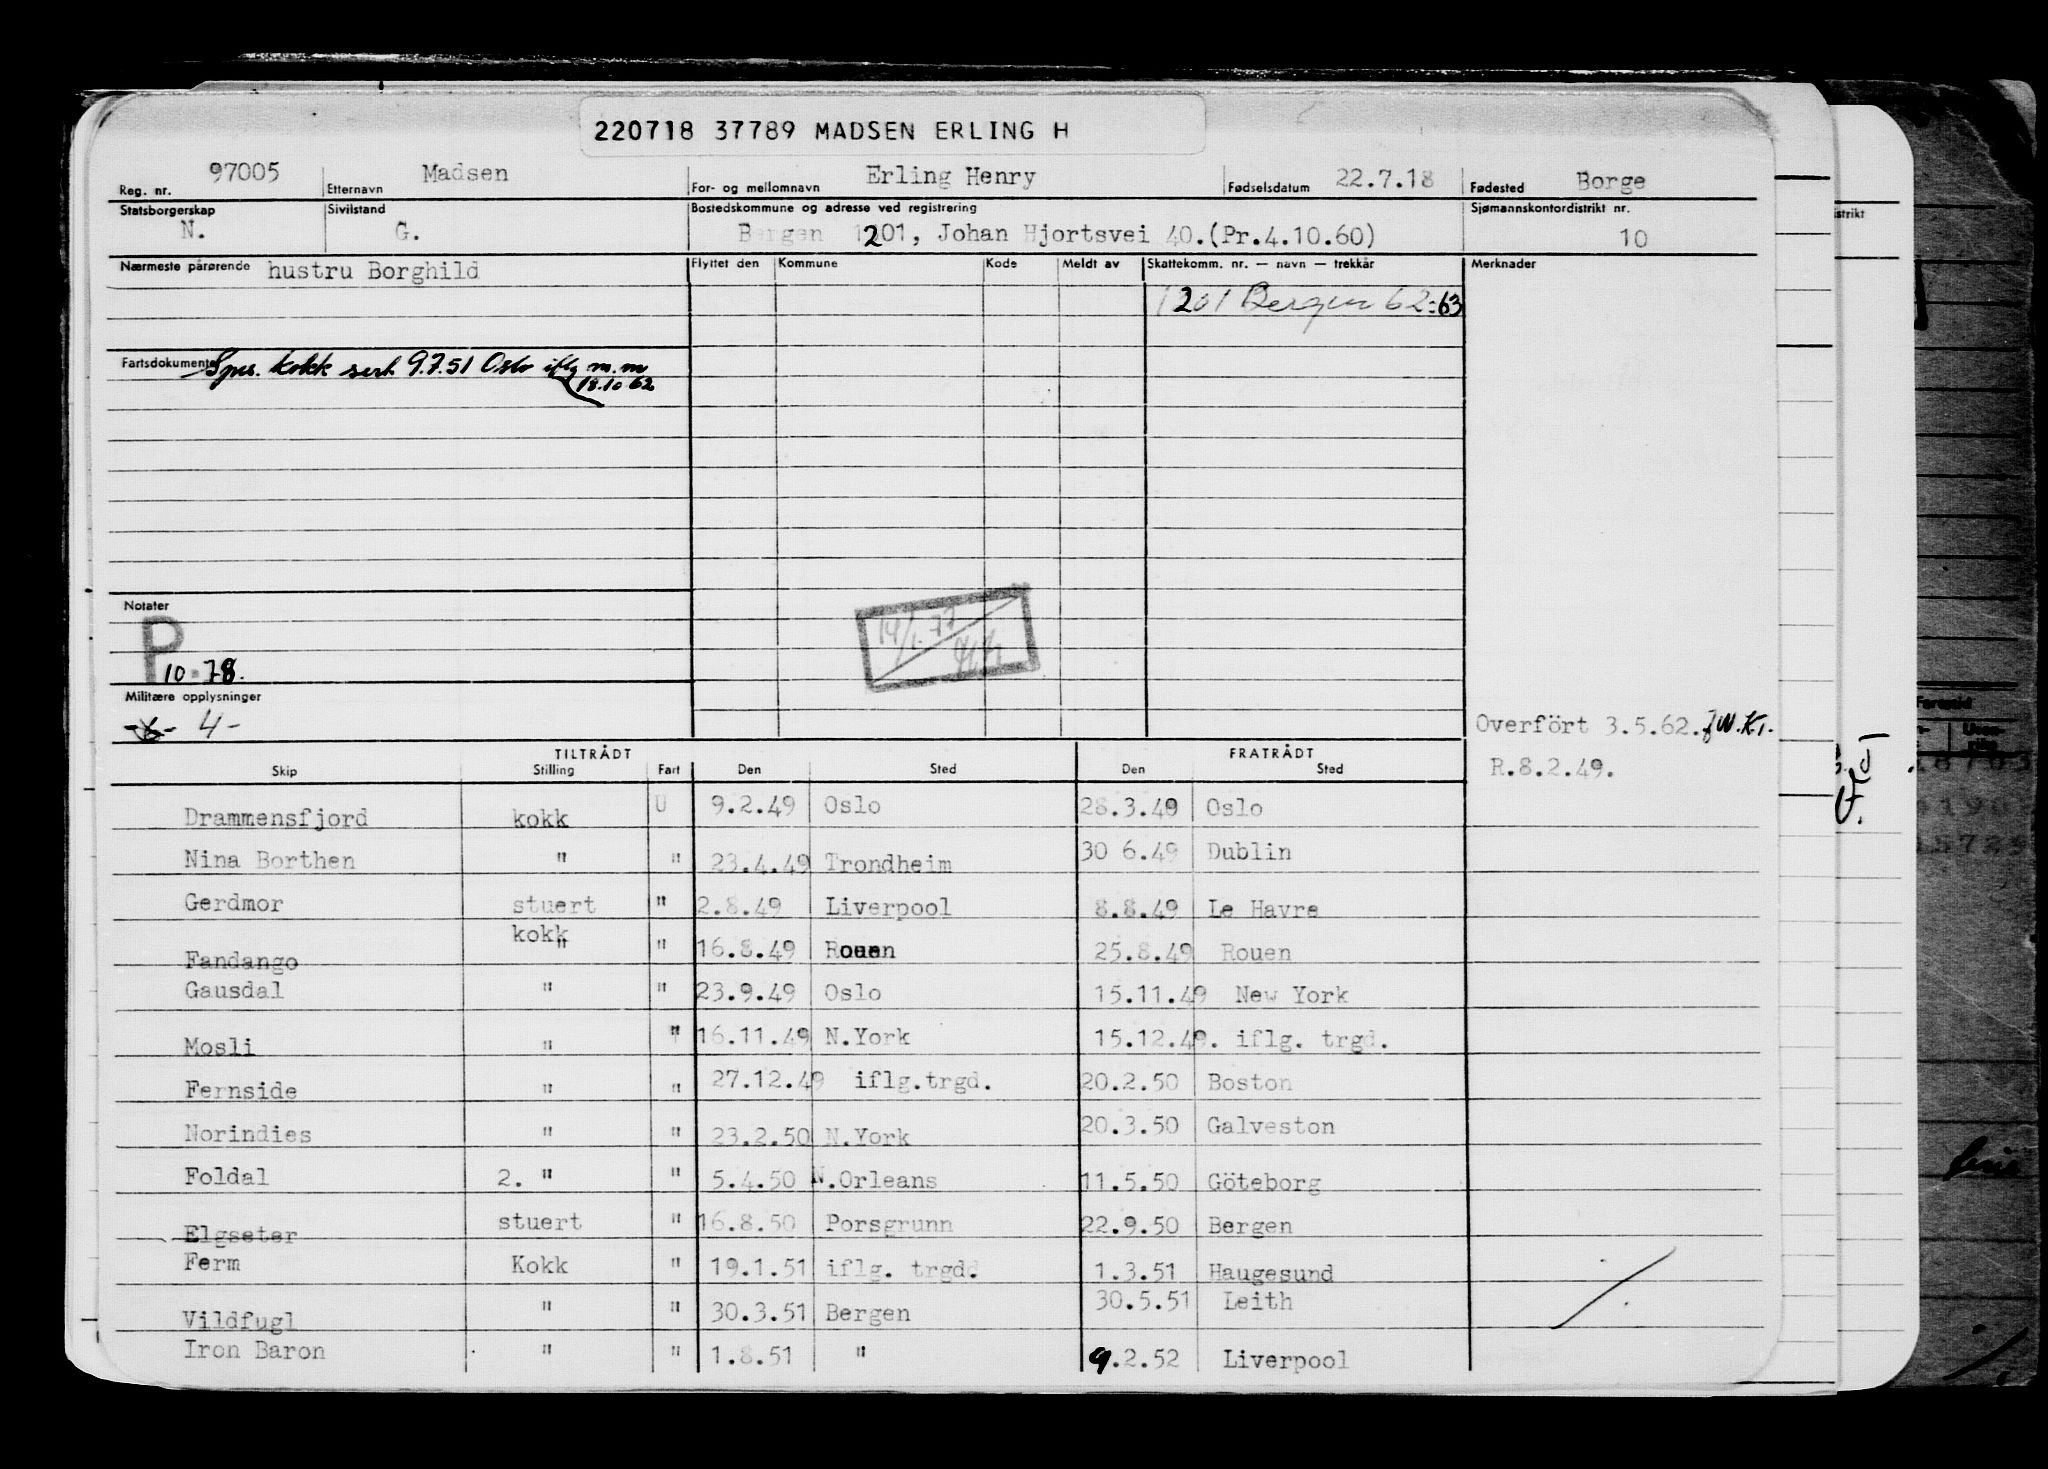 220718 37789 MADSEN ERLING H
Reg. nr. 97005 Etternavn Madsen For- og mellomnavn Erling Henry Fødselsdatum 22.7.18 Fødested Borge
Statsborgerskap Sivilstand Bostedskommune og adresse ved registrering Sjømannskontordistrikt nr.
N. G. Bergen 1201, Johan Hjortsvei 40.(Pr.4.10.60) 10
Nærmeste pårørende hustru Borghild Flyttet den Kommune Kode Meldt av Skattekomm. nr. — navn — trekkår Merknader
1201 Bergen 62-63
Fartsdokumenter Spes. kokk sert 9.7.51 Oslo iflg m.m
18.10.62
Notater
P
10.78.
14/1-77
Militære opplysninger
4-
Overført 3.5.62. W.K.
TILTRÅDT FRATRÅDT
Skip Stilling Fart Den Sted Den Sted
R.8.2.49.
Drammensfjord kokk U 9.2.49 Oslo 28.3.49 Oslo
Nina Borthen " " 23.4.49 Trondheim 30 6.49 Dublin
Gerdmor stuert " 2.8.49 Liverpool 8.8.49 Le Havre
Fandango kokk " " 16.8.49 Rouen 25.8.49 Rouen
Gausdal " " 23.9.49 Oslo 15.11.49 New York
Mosli " " 16.11.49 N.York 15.12.49. iflg. trgd.
Fernside " " 27.12.49 iflg.trgd. 20.2.50 Boston
Norindies " " 23.2.50 N.York 20.3.50 Galveston
Foldal 2. " " 5.4.50 N.Orleans 11.5.50 Göteborg
Elgseter stuert " 16.8.50 Porsgrunn 22.9.50 Bergen
Ferm Kokk " 19.1.51 iflg. trgdd. 1.3.51 Haugesund
Vildfugl " " 30.3.51 Bergen 30.5.51 Leith
Iron Baron " " 1.8.51 " 9.2.52 Liverpool